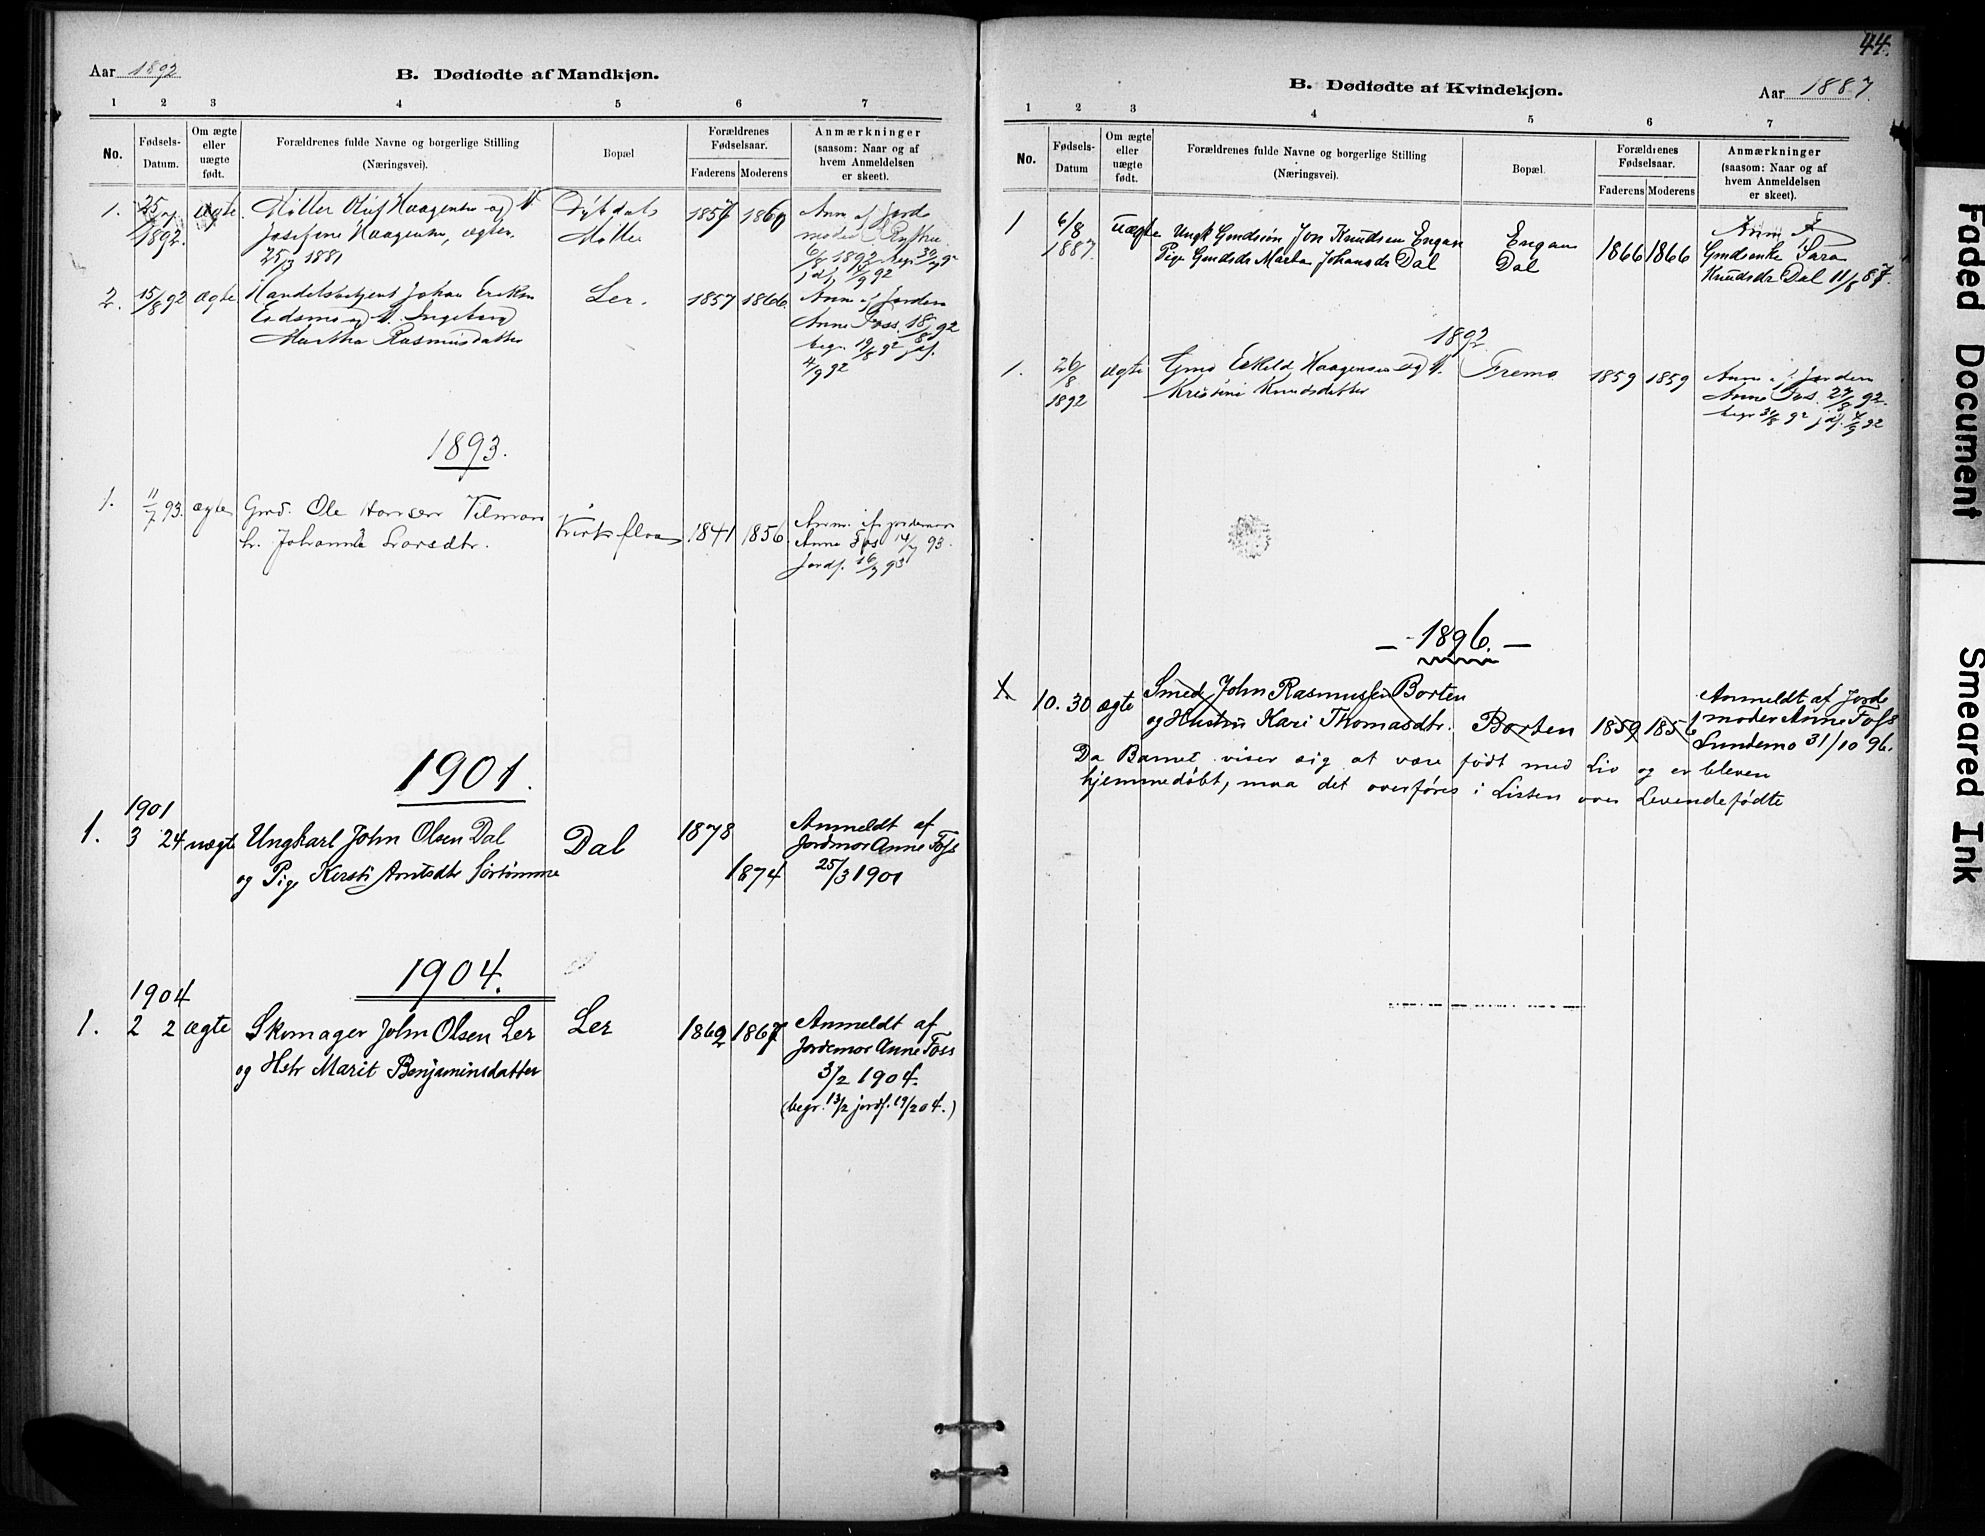 Aar 1892
B. Dødfødte af Mandkjøn.
1 2 3 4 5 6 7
No.
Fødsels-
Datum.
Om ægte
eller
uægte
født.
Forældrenes fulde Navne og borgerlige Stilling
(Næringsvei).
Bopæl
Forældrenes
Fødselsaar.
Faderens Moderens
Anmærkninger
(saasom: Naar og af
hvem Anmeldelsen
er skeet).
1. 25/7 ægte. Møller Oluf Haagensen og H. 1857 1860 Anm af Jorde
1892. Josefine Haagensen, Møller
25/3 1881 6/8 1892
2. 15/8 92 ægte Handelsbetjent Johan Ler. 1857 1866 Anm af Jordem
og H. Ingeborg Anne Foss. 18/8 92
Martha Rasmusdatter begr 19/8 92 jdf.
4/9 92
1893.
1. 11/7 93. ægte Gmd. Ole Hansen Kirkefloen 1841 1856. Anm. af jordemor
h. Johanna Larsdtr. Anne Fos 14/7 93.
Jordf. 16/7 93
1901.
1901
1. 3 24 uægte Ungkarl John Olsen Dal Dal 1878 Anmeldt af
Jordmor Anne Fofs
og Pige Kirsti Arntsdtr Sørtømme 1874 25/3 1901
1904.
1904
1. 2 2 ægte Skomager John Olsen Ler Ler 1862 1867 Anmeldt af
Jordemor Anne Foss
og Hstr Marit Benjaminsdatter 3/2 1904.
(begr. 13/2 jordf. 19/2 04.)
44.
B. Dødfødte af Kvindekjøn.
Aar 1887.
1 2 3 4 5 6 7
No.
Fødsels-
Datum
Om ægte
eller
uægte
født.
Forældrenes fulde Navne og borgerlige Stilling
(Næringsvei).
Bopæl.
Forældrenes
Fødselsaar.
Faderens Moderens
Anmærkninger
(saasom: Naar og af
hvem Anmeldelsen
er skeet).
1 6/8 uægte Ungk Gmdsøn Jon Knudsen Engan Engan 1866 1866 Anm af
1887. Pige Gmdsdr Marta Johansdr Dal Dal Gmdsenke Sara
Knudsdr Dal 11/8 87.
1892
1. 26/8 ægte Gmd Eskild Haagensen og H. Fremo 1859 1859 Anm af Jordem
1892 Kristine Knudsdatter Anne Fos. 27/8 92.
begr 31/8 92 jdf. 4/9 92
— 1896. —
1. 10. 30 ægte Smed John Rasmussen Borten Anmeldt af Jorde
og Hustru Kari Thomasdtr. Borten 1859 1856 moder Anne Fofs
Sundemo 31/10 96.
Da Barnet viser sig at være født med Liv og er bleven
hjemmedøbt, maa det overføres i Listen over Levendefødte
Faded Document
Smeared Ink